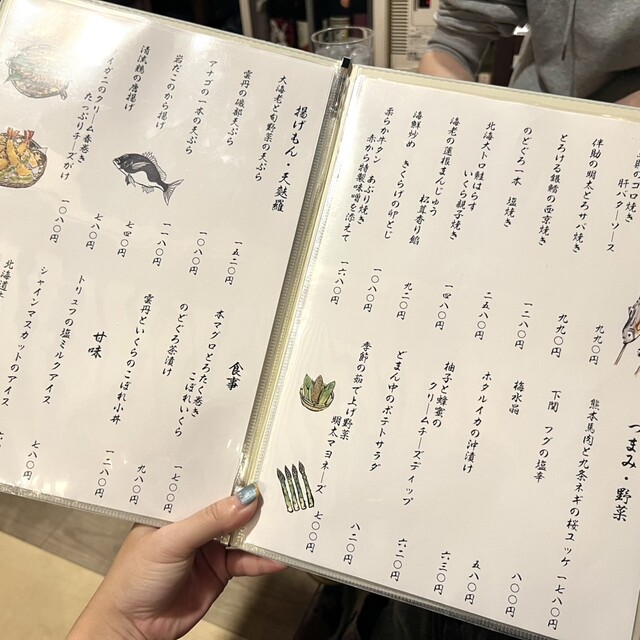 肝バターソース
伴助の明太とろサバ焼き
九九〇円
とろける銀鱈の西京焼き
九九〇円
のどぐろ一本 塩焼き
一二八〇円
北海大トロ鮭はらす
いくら親子焼き
二五八〇円
海老の蓮根まんじゅう
松茸香り餡
一四八〇円
海鮮炒め きくらげの卵とじ
九二〇円
柔らか牛タン あぶり焼き
赤から特製味噌を添えて
一〇八〇円
一六八〇円
つまみ・野菜
熊本馬肉と九条ネギの桜ユッケ
一七八〇円
下関 フグの塩辛
八〇〇円
梅水晶
五八〇円
ホタルイカの沖漬け
六三〇円
柚子と蜂蜜の
クリームチーズディップ
六二〇円
どまん中のポテトサラダ
八二〇円
季節の茹で上げ野菜
明太マヨネーズ
七〇〇円
揚げもん・天麩羅
大海老と旬野菜の天ぷら
一五二〇円
雲丹の磯部天ぷら
一〇八〇円
アナゴの一本の天ぷら
一一八〇円
岩だこのから揚げ
七四〇円
清流鶏の唐揚げ
七八〇円
イカニのクリーム春巻き
たっぷりチーズがけ
一〇八〇円
食事
本マグロとろたく巻き
こぼれいくら
一七〇〇円
のどぐろ茶漬け
九八〇円
雲丹といくらのこぼれ小丼
一二八〇円
甘味
トリュフの塩ミルクアイス
七八〇円
シャインマスカットのアイス
北海道